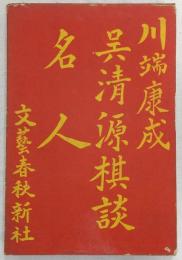 川端康成
呉清源棋談
名人
文藝春秋新社